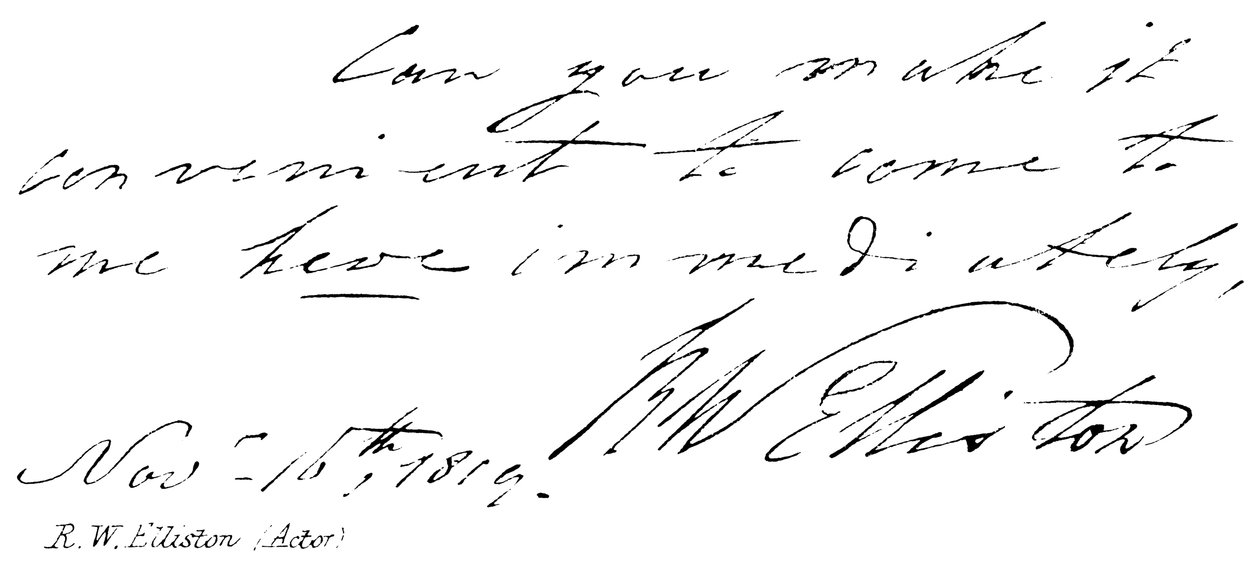 Can you make it
convenient to come to
me here immediately,
RW Elliston
Novr - 16th, 1819.
R. W. Elliston (Actor)